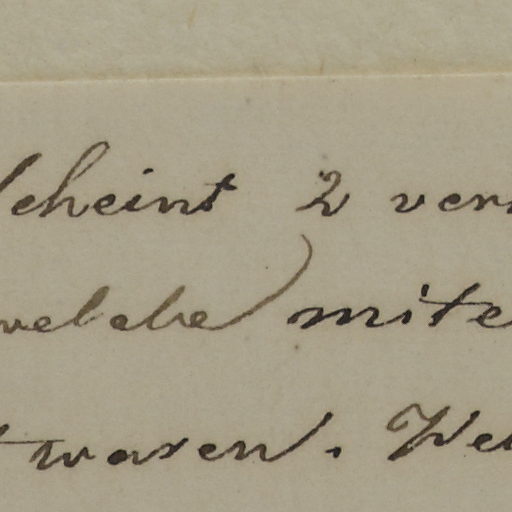 scheint 2 ver
welche mite
t waren. We